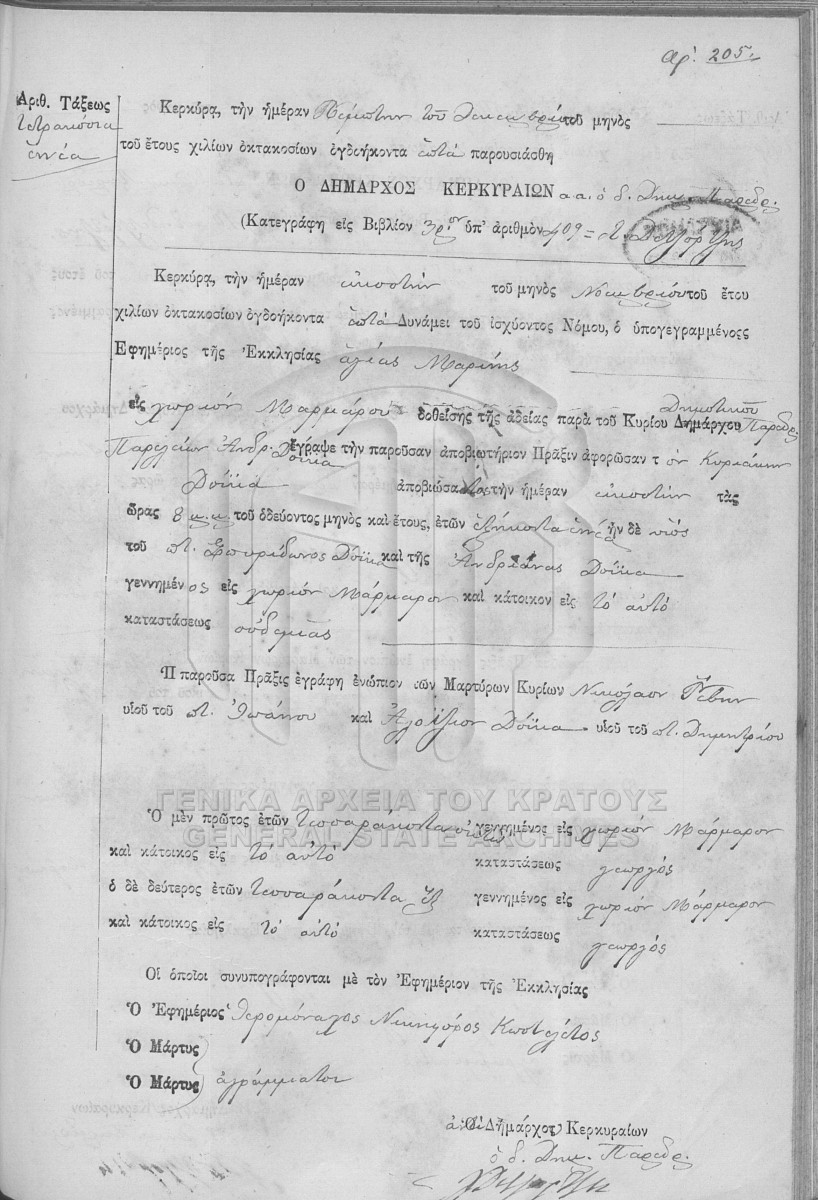 αρ. 205.
Ἀριθ. Τάξεως
τετρακόσια
ἐννέα
Κερκύρᾳ, τὴν ἡμέραν Πέμπτην τοῦ Δεκεμβρίου τοῦ μηνὸς
τοῦ ἔτους χιλίων ὀκτακοσίων ὀγδοήκοντα ἑπτὰ παρουσιάσθη
Ο ΔΗΜΑΡΧΟΣ ΚΕΡΚΥΡΑΙΩΝ α.α. ὁ δ. Δημ. Πάρεδρ.
(Κατεγράφη εἰς Βιβλίον 3ον ὑπ' ἀριθμὸν 409 =
Κερκύρᾳ, τὴν ἡμέραν εἰκοστὴν τοῦ μηνὸς Νοεμβρίου τοῦ ἔτου
χιλίων ὀκτακοσίων ὀγδοήκοντα ἑπτὰ Δυνάμει τοῦ ἰσχύοντος Νόμου, ὁ ὑπογεγραμμένοςς
Ἐφημέριος τῆς Ἐκκλησίας ἁγίας Μαρίνης
εἰς χωρίον Μαρμάρου δοθείσης τῆς ἀδείας παρὰ τοῦ Κυρίου Δημάρχου Δημοτικοῦ Παρέδρ.
Παρελείων Ἀνδρ. Δόϊκα ἔγραψε τὴν παροῦσαν ἀποβιωτήριον Πρᾶξιν ἀφορῶσαν τ ὸν Κυριάκην
Δόϊκα ἀποβιώσαντος τὴν ἡμέραν εἰκοστὴν τὰς
ὥρας 8 μ.μ. τοῦ ὁδεύοντος μηνὸς καὶ ἔτους, ἐτῶν ἑξήκοντα ἐννέα ἦν δὲ υἱὸς
τοῦ ποτ. Σπυρίδωνος Δόϊκα καὶ τῆς Ἀνδριάνας Δόϊκα
γεννημέν ος εἰς χωρίον Μάρμαρον καὶ κάτοικον εἰς τὸ αὐτὸ
καταστάσεως οὐδεμιᾶς
Ἡ παροῦσα Πρᾶξις ἐγράφη ἐνώπιον τῶν Μαρτύρων Κυρίων Νικόλαον
υἱοῦ τοῦ ποτ. Ἰωάννου καὶ Ἀλοΐσιον Δόϊκα υἱοῦ τοῦ ποτ. Δημητρίου
ΓΕΝΙΚΑ ΑΡΧΕΙΑ ΤΟΥ ΚΡΑΤΟΥΣ
GENERAL STATE ARCHIVES
Ὁ μὲν πρῶτος ἐτῶν τεσσαράκοντα ὀκτὼ γεννημένος εἰς χωρίον Μάρμαρον
καὶ κάτοικος εἰς τὸ αὐτὸ καταστάσεως γεωργός
ὁ δὲ δεύτερος ἐτῶν τεσσαράκοντα ἓξ γεννημένος εἰς χωρίον Μάρμαρον
καὶ κάτοικος εἰς τὸ αὐτὸ καταστάσεως γεωργός
Οἱ ὁποῖοι συνυπογράφονται μὲ τὸν Ἐφημέριον τῆς Ἐκκλησίας
Ὁ Ἐφημέριος Ἱερομόναχος Νικηφόρος
Ὁ Μάρτυς
Ὁ Μάρτυς ἀγράμματοι
Ὁ Δήμαρχος Κερκυραίων
ὁ δ. Δημ. Πάρεδρ.